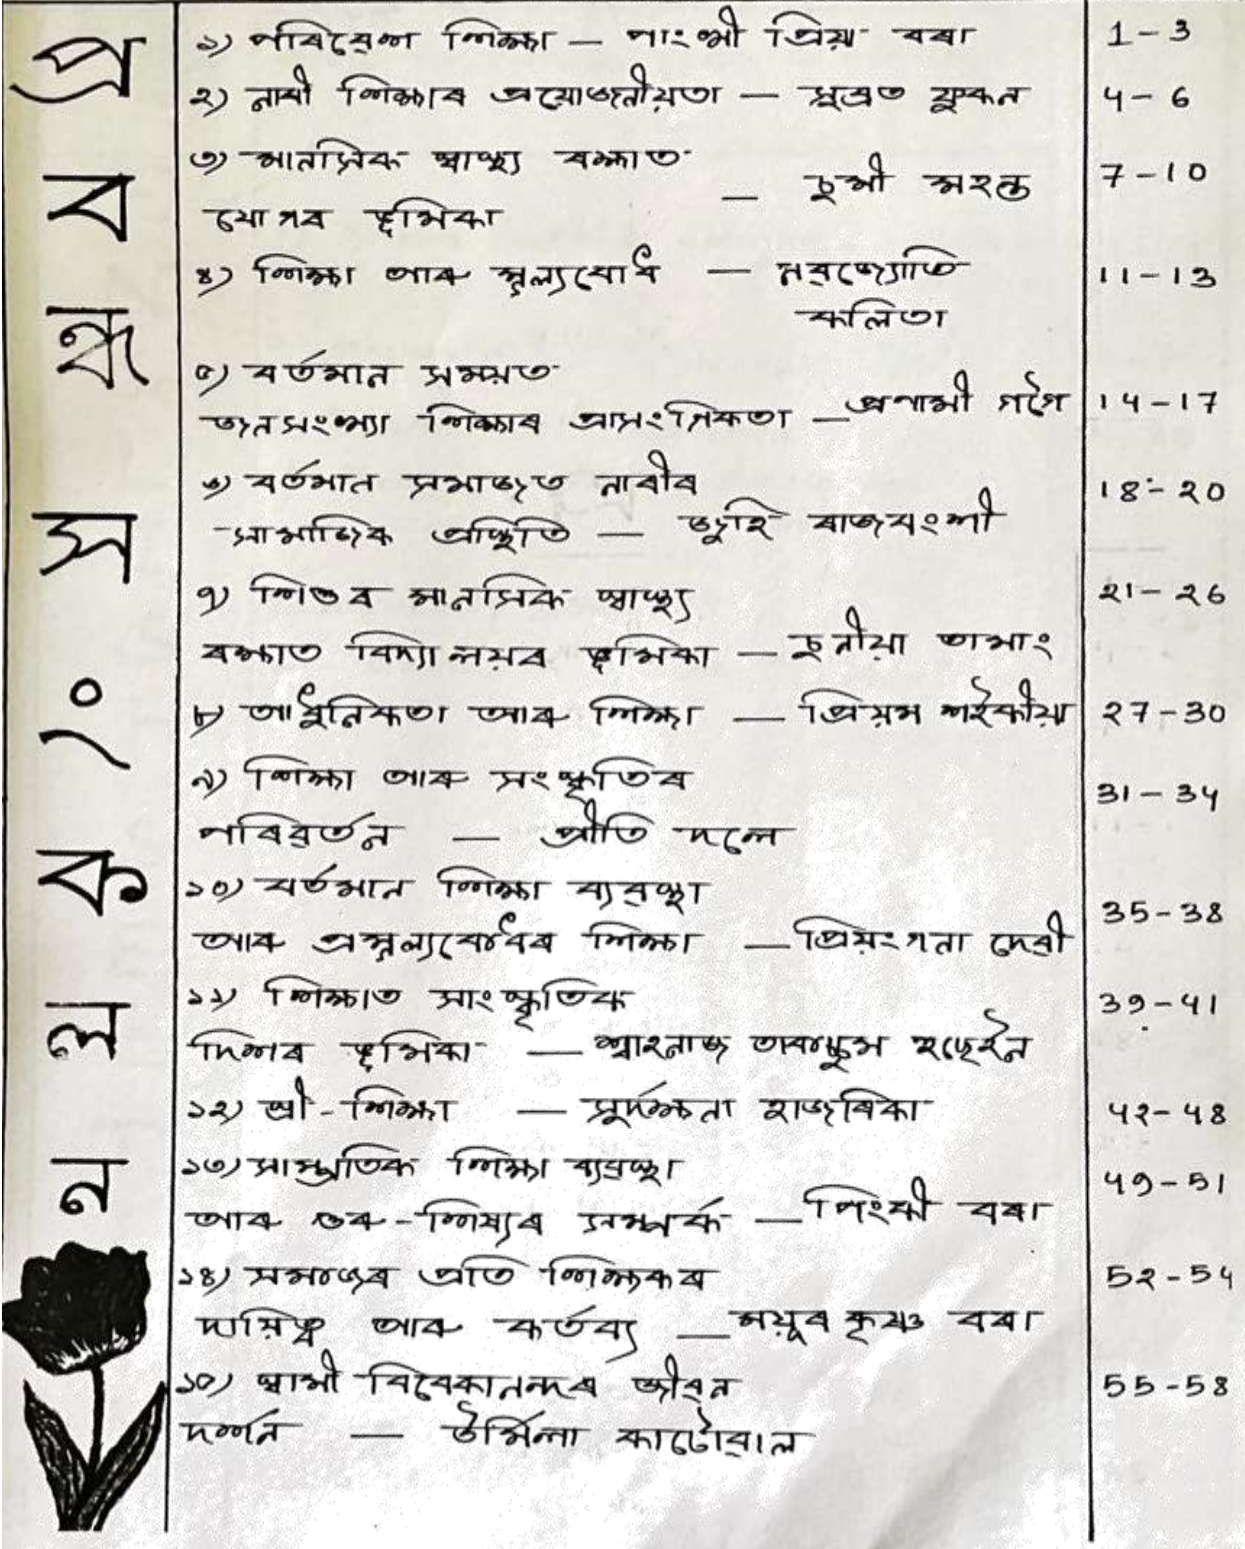 প্ৰবন্ধ সংকলন
১) পৰিৱেশ শিক্ষা — পাংখী প্ৰিয়া বৰা 1-3
২) নাৰী শিক্ষাৰ প্ৰয়োজনীয়তা — সুব্ৰত ফুকন 4-6
৩) মানসিক স্বাস্থ্য ৰক্ষাত
যোগৰ ভূমিকা — চুমী মহন্ত 7-10
৪) শিক্ষা আৰু মূল্যবোধ — নৱজ্যোতি
কলিতা 11-13
৫) বৰ্তমান সময়ত
জনসংখ্যা শিক্ষাৰ প্ৰাসংগিকতা — প্ৰণামী গগৈ 14-17
৬) বৰ্তমান সমাজত নাৰীৰ
সামাজিক প্ৰস্থিতি — জুহি ৰাজবংশী 18-20
৭) শিশুৰ মানসিক স্বাস্থ্য
ৰক্ষাত বিদ্যালয়ৰ ভূমিকা — চুনীয়া তামাং 21-26
৮) আধুনিকতা আৰু শিক্ষা — প্ৰিয়ম শইকীয়া 27-30
৯) শিক্ষা আৰু সংস্কৃতিৰ
পৰিৱৰ্তন — প্ৰীতি দলে 31-34
১০) বৰ্তমান শিক্ষা ব্যৱস্থা
আৰু প্ৰমূল্যবোধৰ শিক্ষা — প্ৰিয়ংগনা দেৱী 35-38
১১) শিক্ষাত সাংস্কৃতিক
দিশৰ ভূমিকা — শ্বাহনাজ তাবাচ্ছুম হুছেইন 39-41
১২) স্ত্ৰী-শিক্ষা — হাজৰিকা 42-48
১৩) সাম্প্ৰতিক শিক্ষা ব্যৱস্থা
আৰু গুৰু-শিষ্যৰ সম্পৰ্ক — পিংকী বৰা 49-51
১৪) সমাজৰ প্ৰতি শিক্ষকৰ
দায়িত্ব আৰু কৰ্তব্য — ময়ূৰ কৃষ্ণ বৰা 52-54
১৫) স্বামী বিবেকানন্দৰ জীৱন
দৰ্শন — উৰ্মিলা কাটোৱাল 55-58